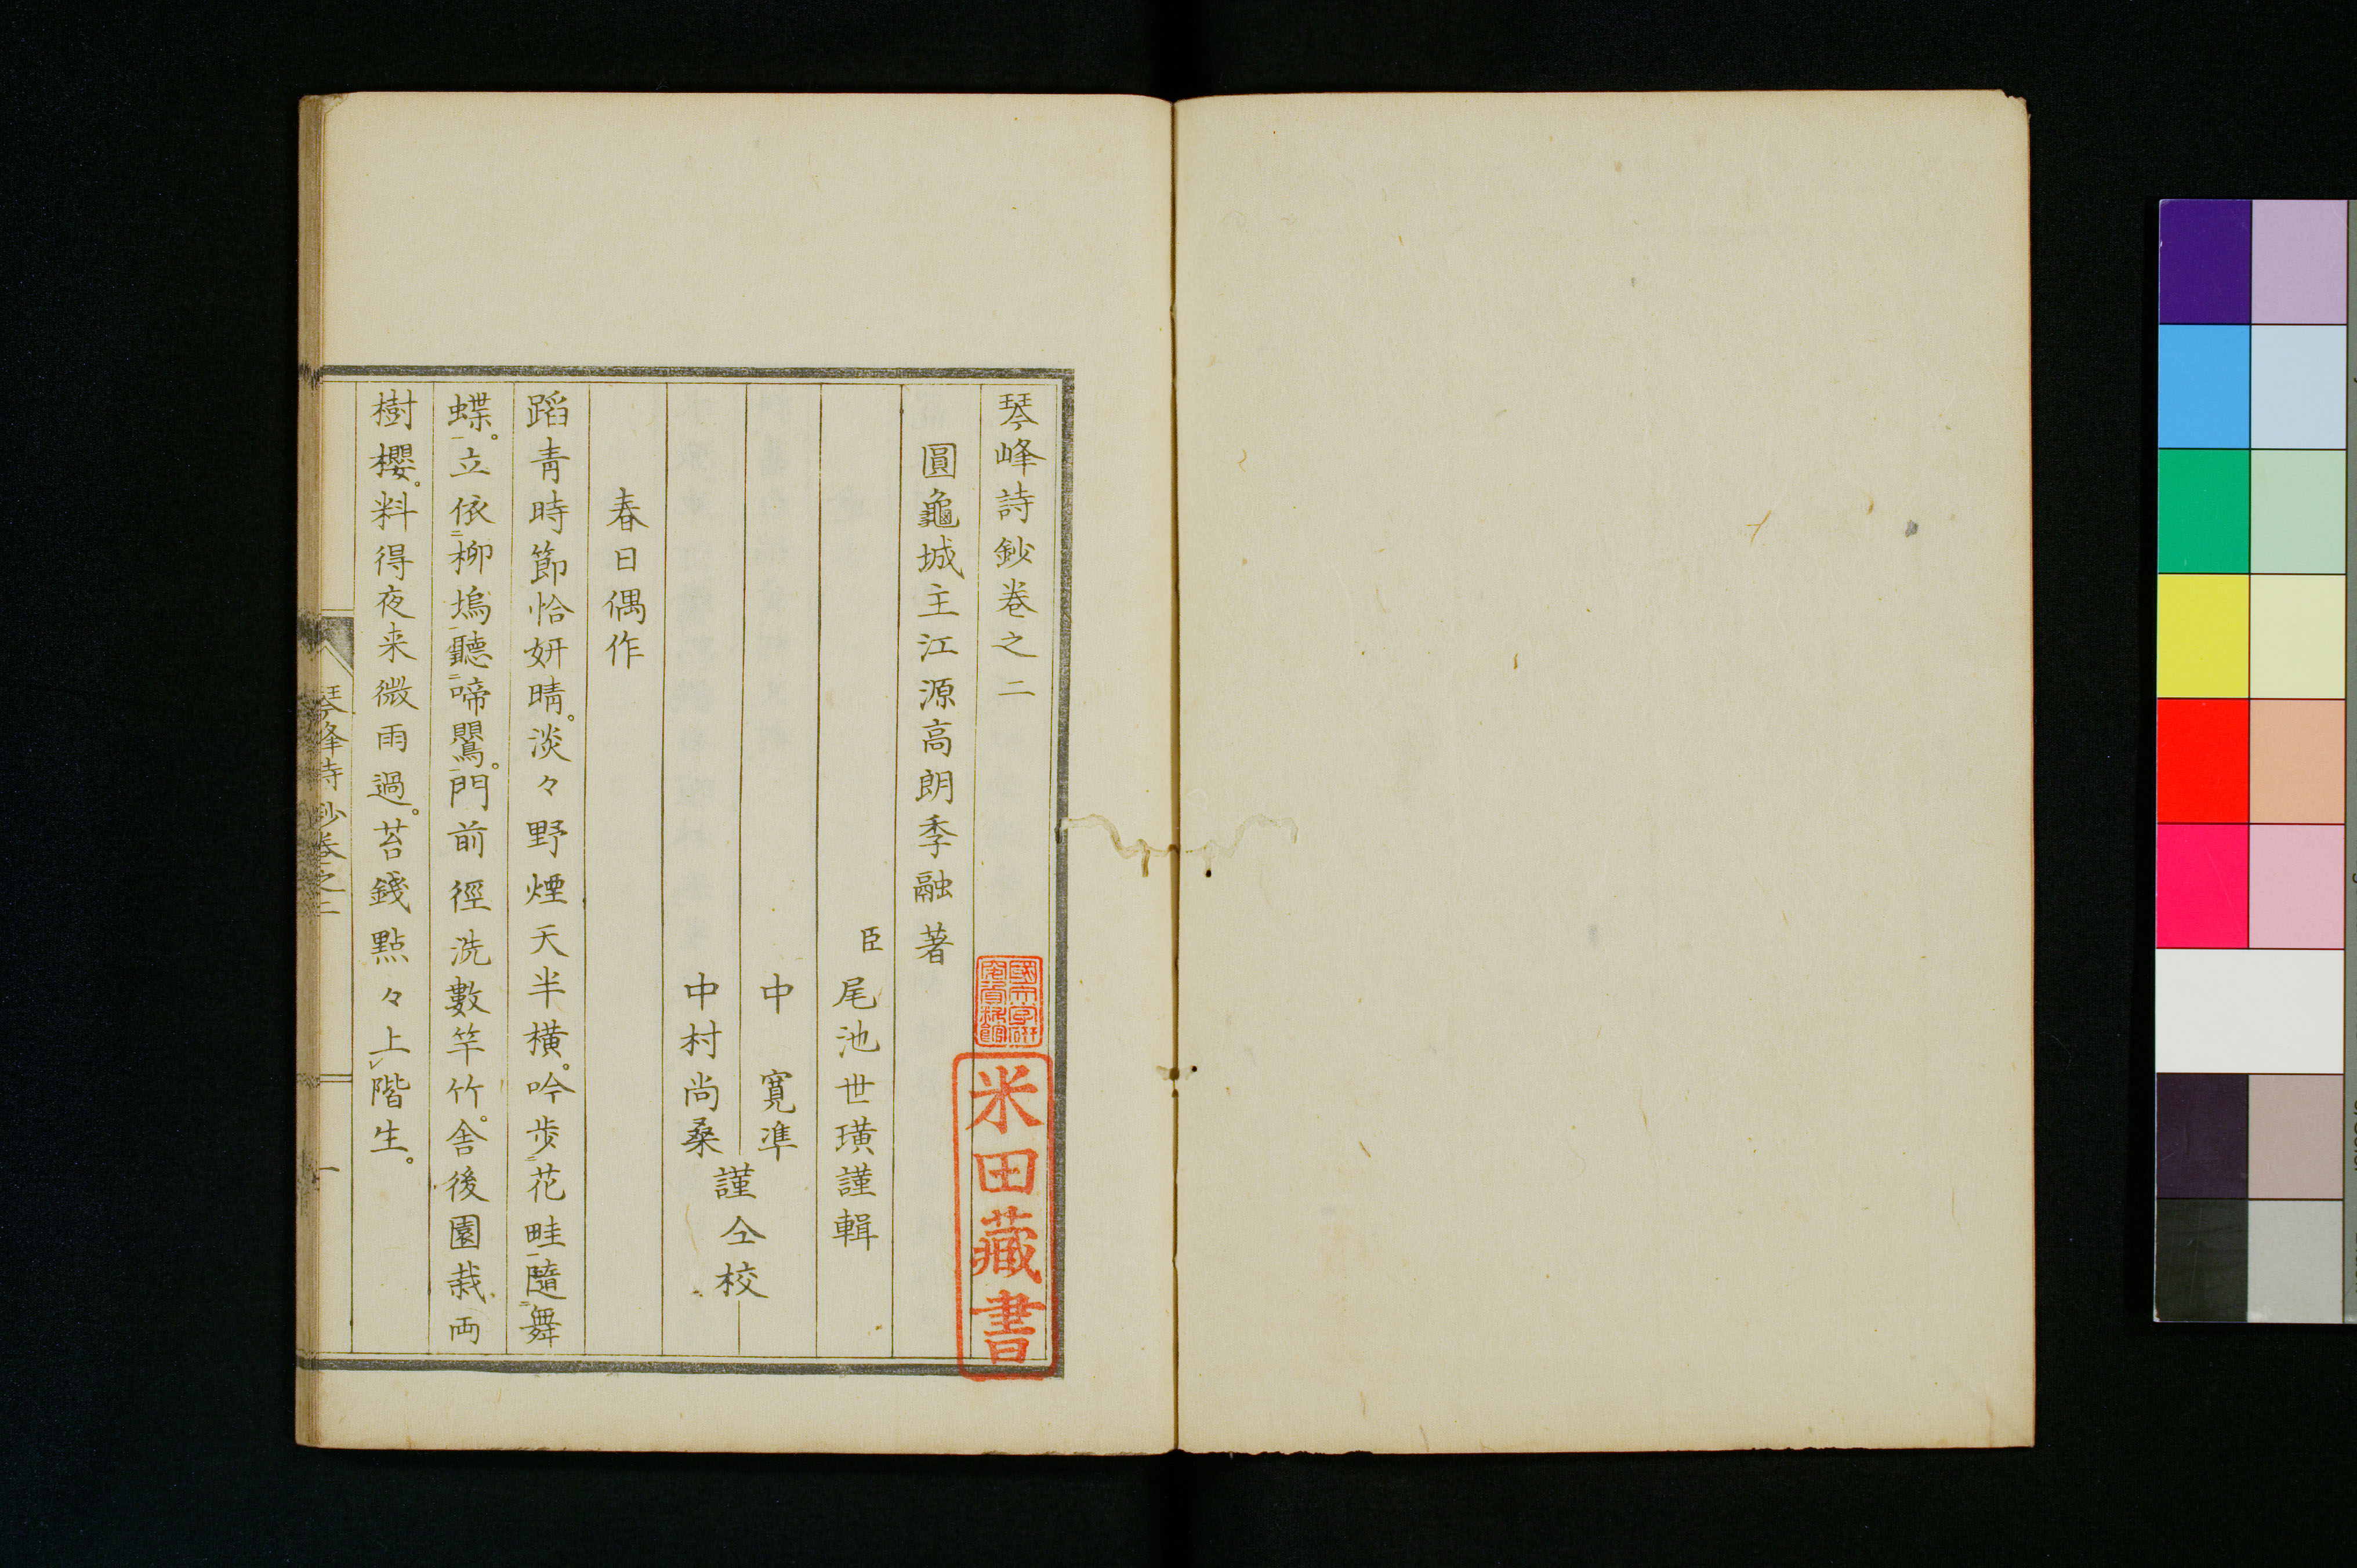 琴峰詩鈔卷之二
圓龜城主江源高朗季融著
臣 尾池世璜謹輯
中 寛準
中村尚桑
謹仝校
春日偶作
蹈青時節恰妍晴。淡々野煙天半横。吟歩花畦隨舞
蝶。立依柳塢聽啼鸎。門前徑洗數竿竹。舎後園栽両
樹櫻。料得夜来微雨過。苔錢點々上階生。
琴峰詩鈔卷之二
一
米田藏書